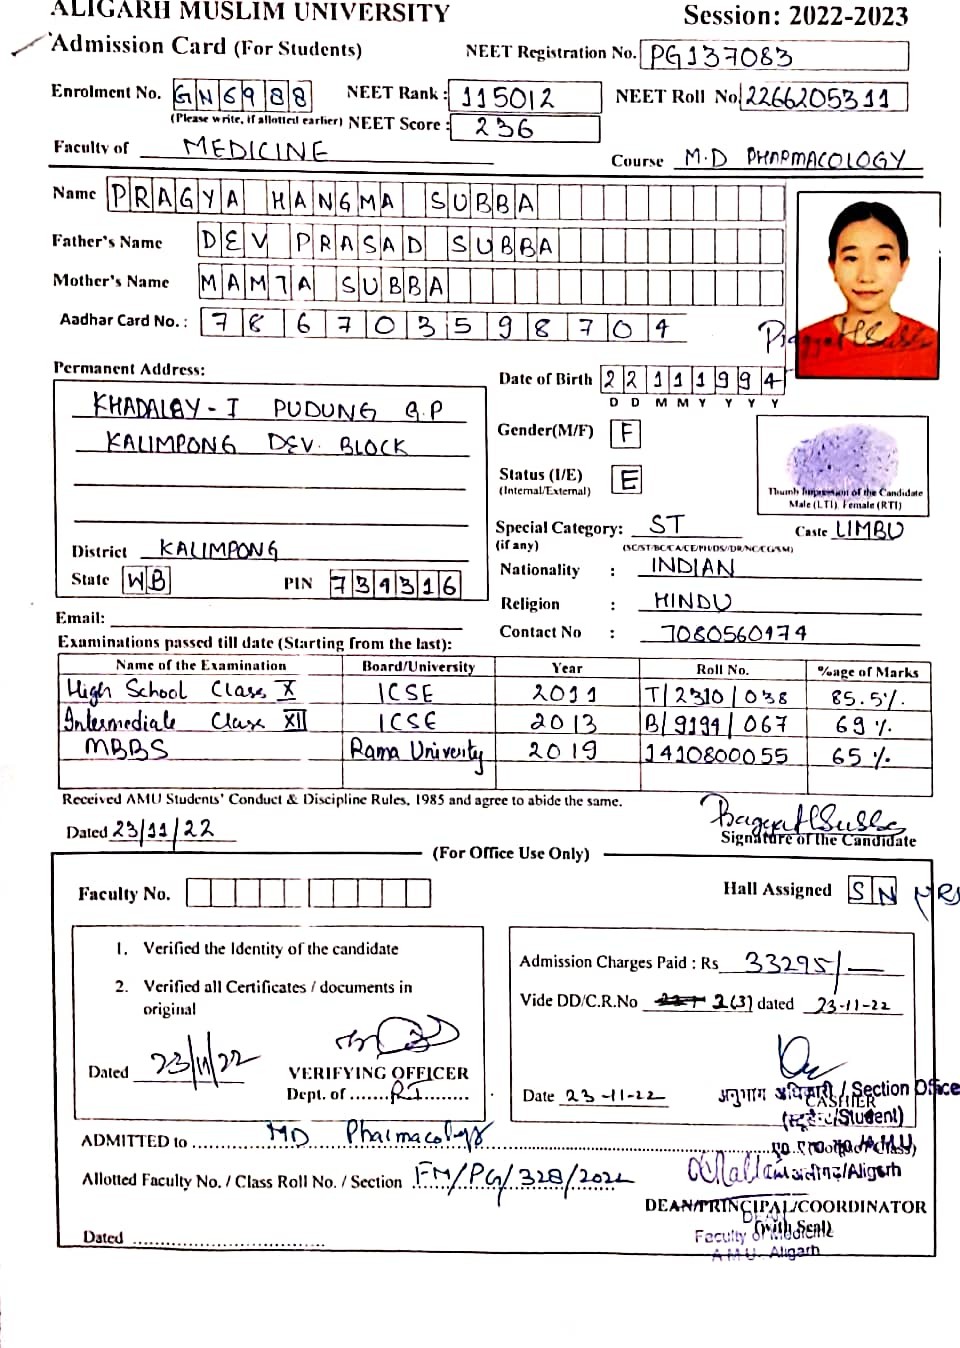 ALIGARH MUSLIM UNIVERSITY
Session: 2022-2023
Admission Card (For Students)
NEET Registration No. PG137083
Enrolment No. GN6988
NEET Rank : 115012
NEET Roll No. 2266205311
(Please write, if allotted earlier) NEET Score : 236
Faculty of MEDICINE
Course M.D PHARMACOLOGY
Name PRAGYA HANGMA SUBBA
Father's Name DEV PRASAD SUBBA
Mother's Name MAMTA SUBBA
Aadhar Card No. : 786703598704
Permanent Address:
KHADALBY-I PUDUNG G.P
KALIMPONG DEV. BLOCK
District KALIMPONG
State WB PIN 734316
Email:
Date of Birth 22111994
D D M M Y Y Y Y
Gender(M/F) F
Status (I/E) E
(Internal/External)
Thumb Impression of the Candidate
Male (LTI) Female (RTI)
Special Category: ST
Caste LIMBU
(if any) (SC/ST/BC/CA/CE/PH/DS/DR/NC/CG/SM)
Nationality : INDIAN
Religion : HINDU
Contact No : 7080560174
Examinations passed till date (Starting from the last):
Name of the Examination Board/University Year Roll No. %age of Marks
High School Class X ICSE 2011 T/2310/038 85.5%
Intermediate Class XII ICSE 2013 B/9194/067 69%
MBBS Rama University 2019 1410800055 65%
Received AMU Students' Conduct & Discipline Rules, 1985 and agree to abide the same.
Dated 23/11/22
Signature of the Candidate
(For Office Use Only)
Faculty No.
Hall Assigned SN NRS
1. Verified the Identity of the candidate
2. Verified all Certificates / documents in
original
Dated 23/11/22
VERIFYING OFFICER
Dept. of
Admission Charges Paid : Rs 33295/-
Vide DD/C.R.No 2(3) dated 23-11-22
Date 23-11-22
CASHIER
अनुभाग अधिकारी / Section Office
/Student)
ADMITTED to MD Pharmacology
A.M.U.
/Aligarh
Allotted Faculty No. / Class Roll No. / Section FM/PG/328/2022
DEAN/PRINCIPAL/COORDINATOR
(with Seal)
DEAN
Faculty of Medicine
A.M.U. Aligarh
Dated